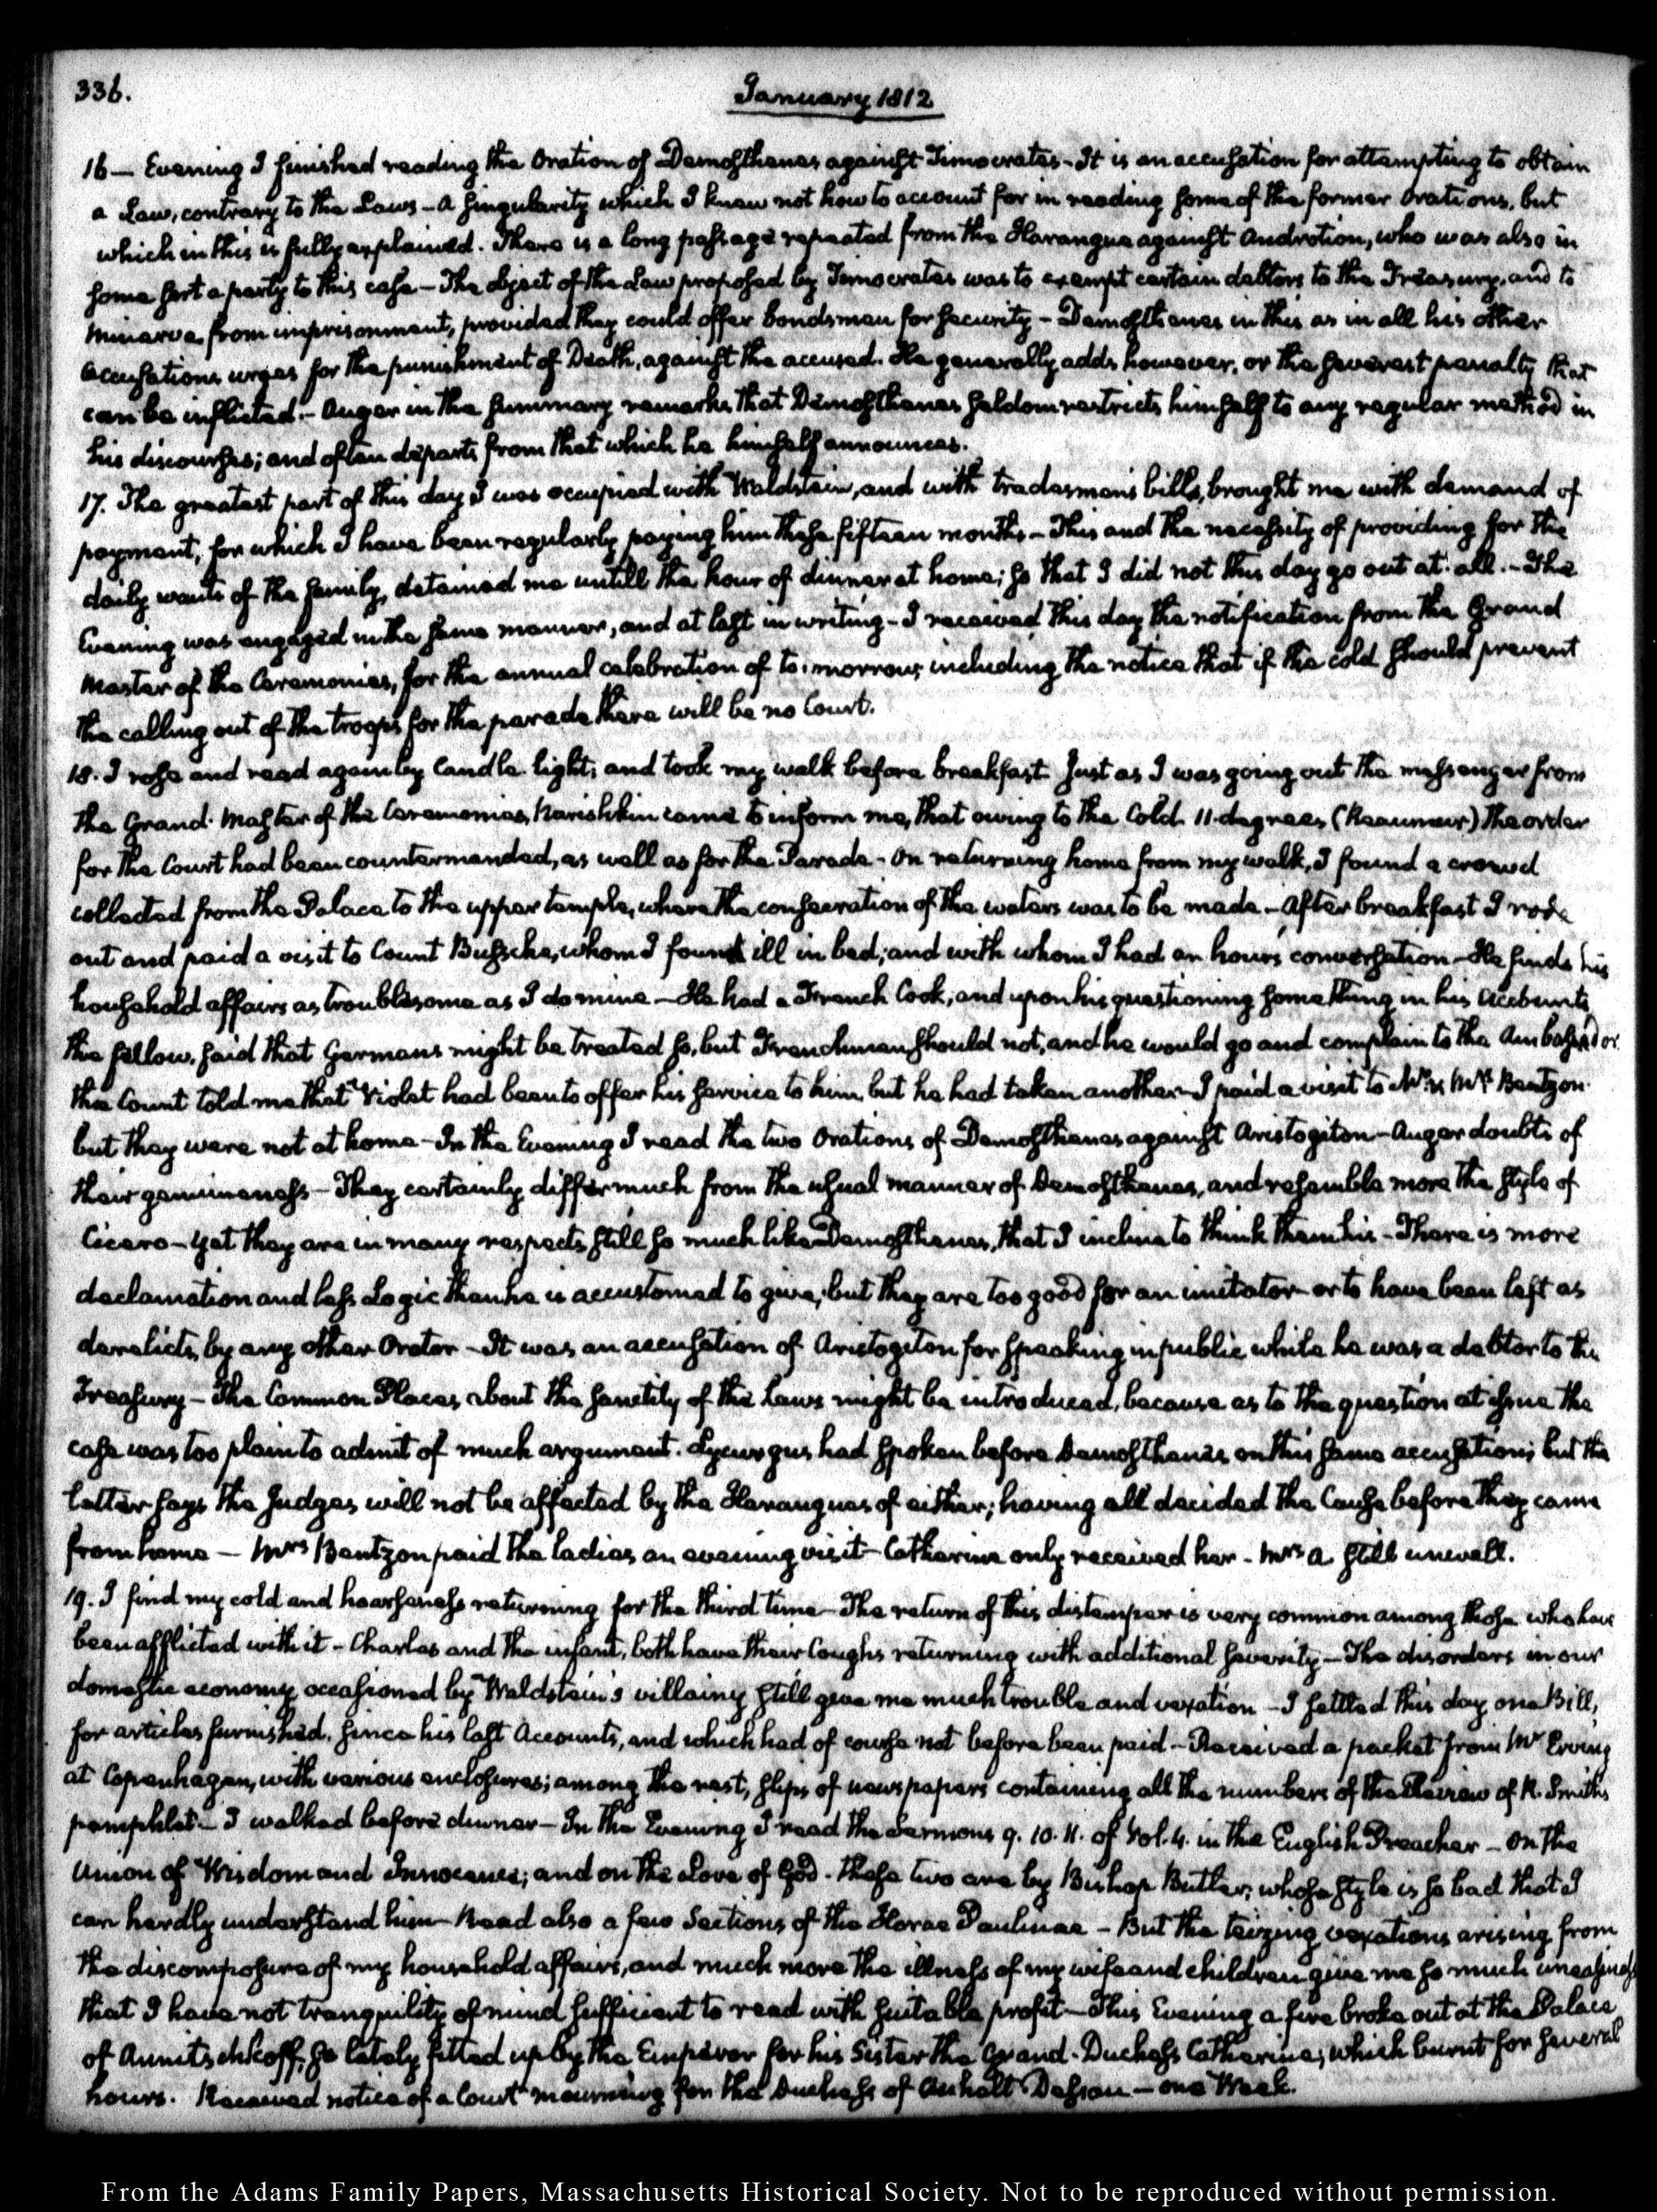 336.
January 1812
16— Evening I finished reading the Oration of Demosthenes against Timocrates - It is an accusation for attempting to obtain
a Law, contrary to the Laws — A singularity which I knew not how to account for in reading some of the former Orations, but
which in this is fully explained. There is a long passage repeated from the Harangue against Androtion, who was also in
some sort a party to this case — The object of the Law proposed by Timocrates was to exempt certain debtors to the Treasury, and to
Minerva from imprisonment, provided they could offer bondsmen for security — Demosthenes in this as in all his other
accusations urges for the punishment of Death, against the accused. He generally adds however, or the severest penalty that
can be inflicted. — Auger in the summary remarks that Demosthenes seldom restricts himself to any regular method in
his discourses; and often departs from that which he himself announces.
17. The greatest part of this day I was occupied with Waldstein, and with tradesmen's bills, brought me with demand of
payment, for which I have been regularly paying him these fifteen months — This and the necessity of providing for the
daily wants of the family, detained me untill the hour of dinner at home; so that I did not this day go out at all. — The
Evening was engaged in the same manner, and at last in writing — I received this day the notification from the Grand
Master of the Ceremonies, for the annual celebration of to-morrow, including the notice that if the cold should prevent
the calling out of the troops for the parade there will be no Court.
18. I rose and read again by Candle-light, and took my walk before breakfast. Just as I was going out the messenger from
the Grand Master of the Ceremonies, Narishkin came to inform me, that owing to the Cold 11 degrees (Reaumur) the order
for the Court had been countermanded, as well as for the Parade - On returning home from my walk, I found a crowd
collected from the Palace to the upper temple, where the consecration of the waters was to be made — After breakfast I rode
out and paid a visit to Count Bussche, whom I found ill in bed; and with whom I had an hour's conversation — He finds his
household affairs as troublesome as I do mine — He had a French Cook, and upon his questioning something in his Accounts,
the fellow, said that Germans might be treated so, but Frenchmen should not, and he would go and complain to the Ambassador.
the Count told me that Violet had been to offer his service to him, but he had taken another — I paid a visit to Mr. & Mrs. Bentzon
but they were not at home — In the Evening I read the two Orations of Demosthenes against Aristogiton — Auger doubts of
their genuineness — They certainly differ much from the usual manner of Demosthenes, and resemble more the style of
Cicero — Yet they are in many respects still so much like Demosthenes, that I incline to think them his — There is more
declamation and less Logic than he is accustomed to give; but they are too good for an imitator or to have been left as
derelicts, by any other Orator — It was an accusation of Aristogiton for speaking in public while he was a debtor to the
Treasury — The Common Places about the sanctity of the Laws might be introduced, because as to the question at issue the
case was too plain to admit of much argument. Lycurgus had spoken before Demosthenes on this same accusation; but the
latter says the Judges will not be affected by the Harangues of either; having all decided the Cause before they came
from home — Mrs Bentzon paid the ladies an evening visit — Catharine only received her — Mrs A. still unwell.
19. I find my cold and hoarseness returning for the third time — The return of this distemper is very common among those who have
been afflicted with it — Charles and the infant, both have their Coughs returning with additional severity — The disorders in our
domestic economy, occasioned by Waldstein's villainy still give me much trouble and vexation — I settled this day one Bill,
for articles furnished, since his last Accounts, and which had of course not before been paid — Received a packet from Mr Erving
at Copenhagen, with various enclosures; among the rest, slips of newspapers containing all the numbers of the Review of R. Smith's
pamphlet — I walked before dinner — In the Evening I read the Sermons 9. 10. 11. of Vol. 4. in the English Preacher — On the
Union of Wisdom and Innocence; and on the Love of God. These two are by Bishop Butler; whose style is so bad that I
can hardly understand him — Read also a few Sections of the Horae Paulinae — But the teizing vexations arising from
the discomposure of my household affairs, and much more the illness of my wife and children give me so much uneasiness
that I have not tranquility of mind sufficient to read with suitable profit — This Evening a fire broke out at the Palace
of Annitschkoff, so lately fitted up by the Emperor for his Sister the Grand-Duchess Catherine; which burnt for several
hours. Received notice of a Court mourning for the Duchess of Anhalt Dessau — one Week.
From the Adams Family Papers, Massachusetts Historical Society. Not to be reproduced without permission.